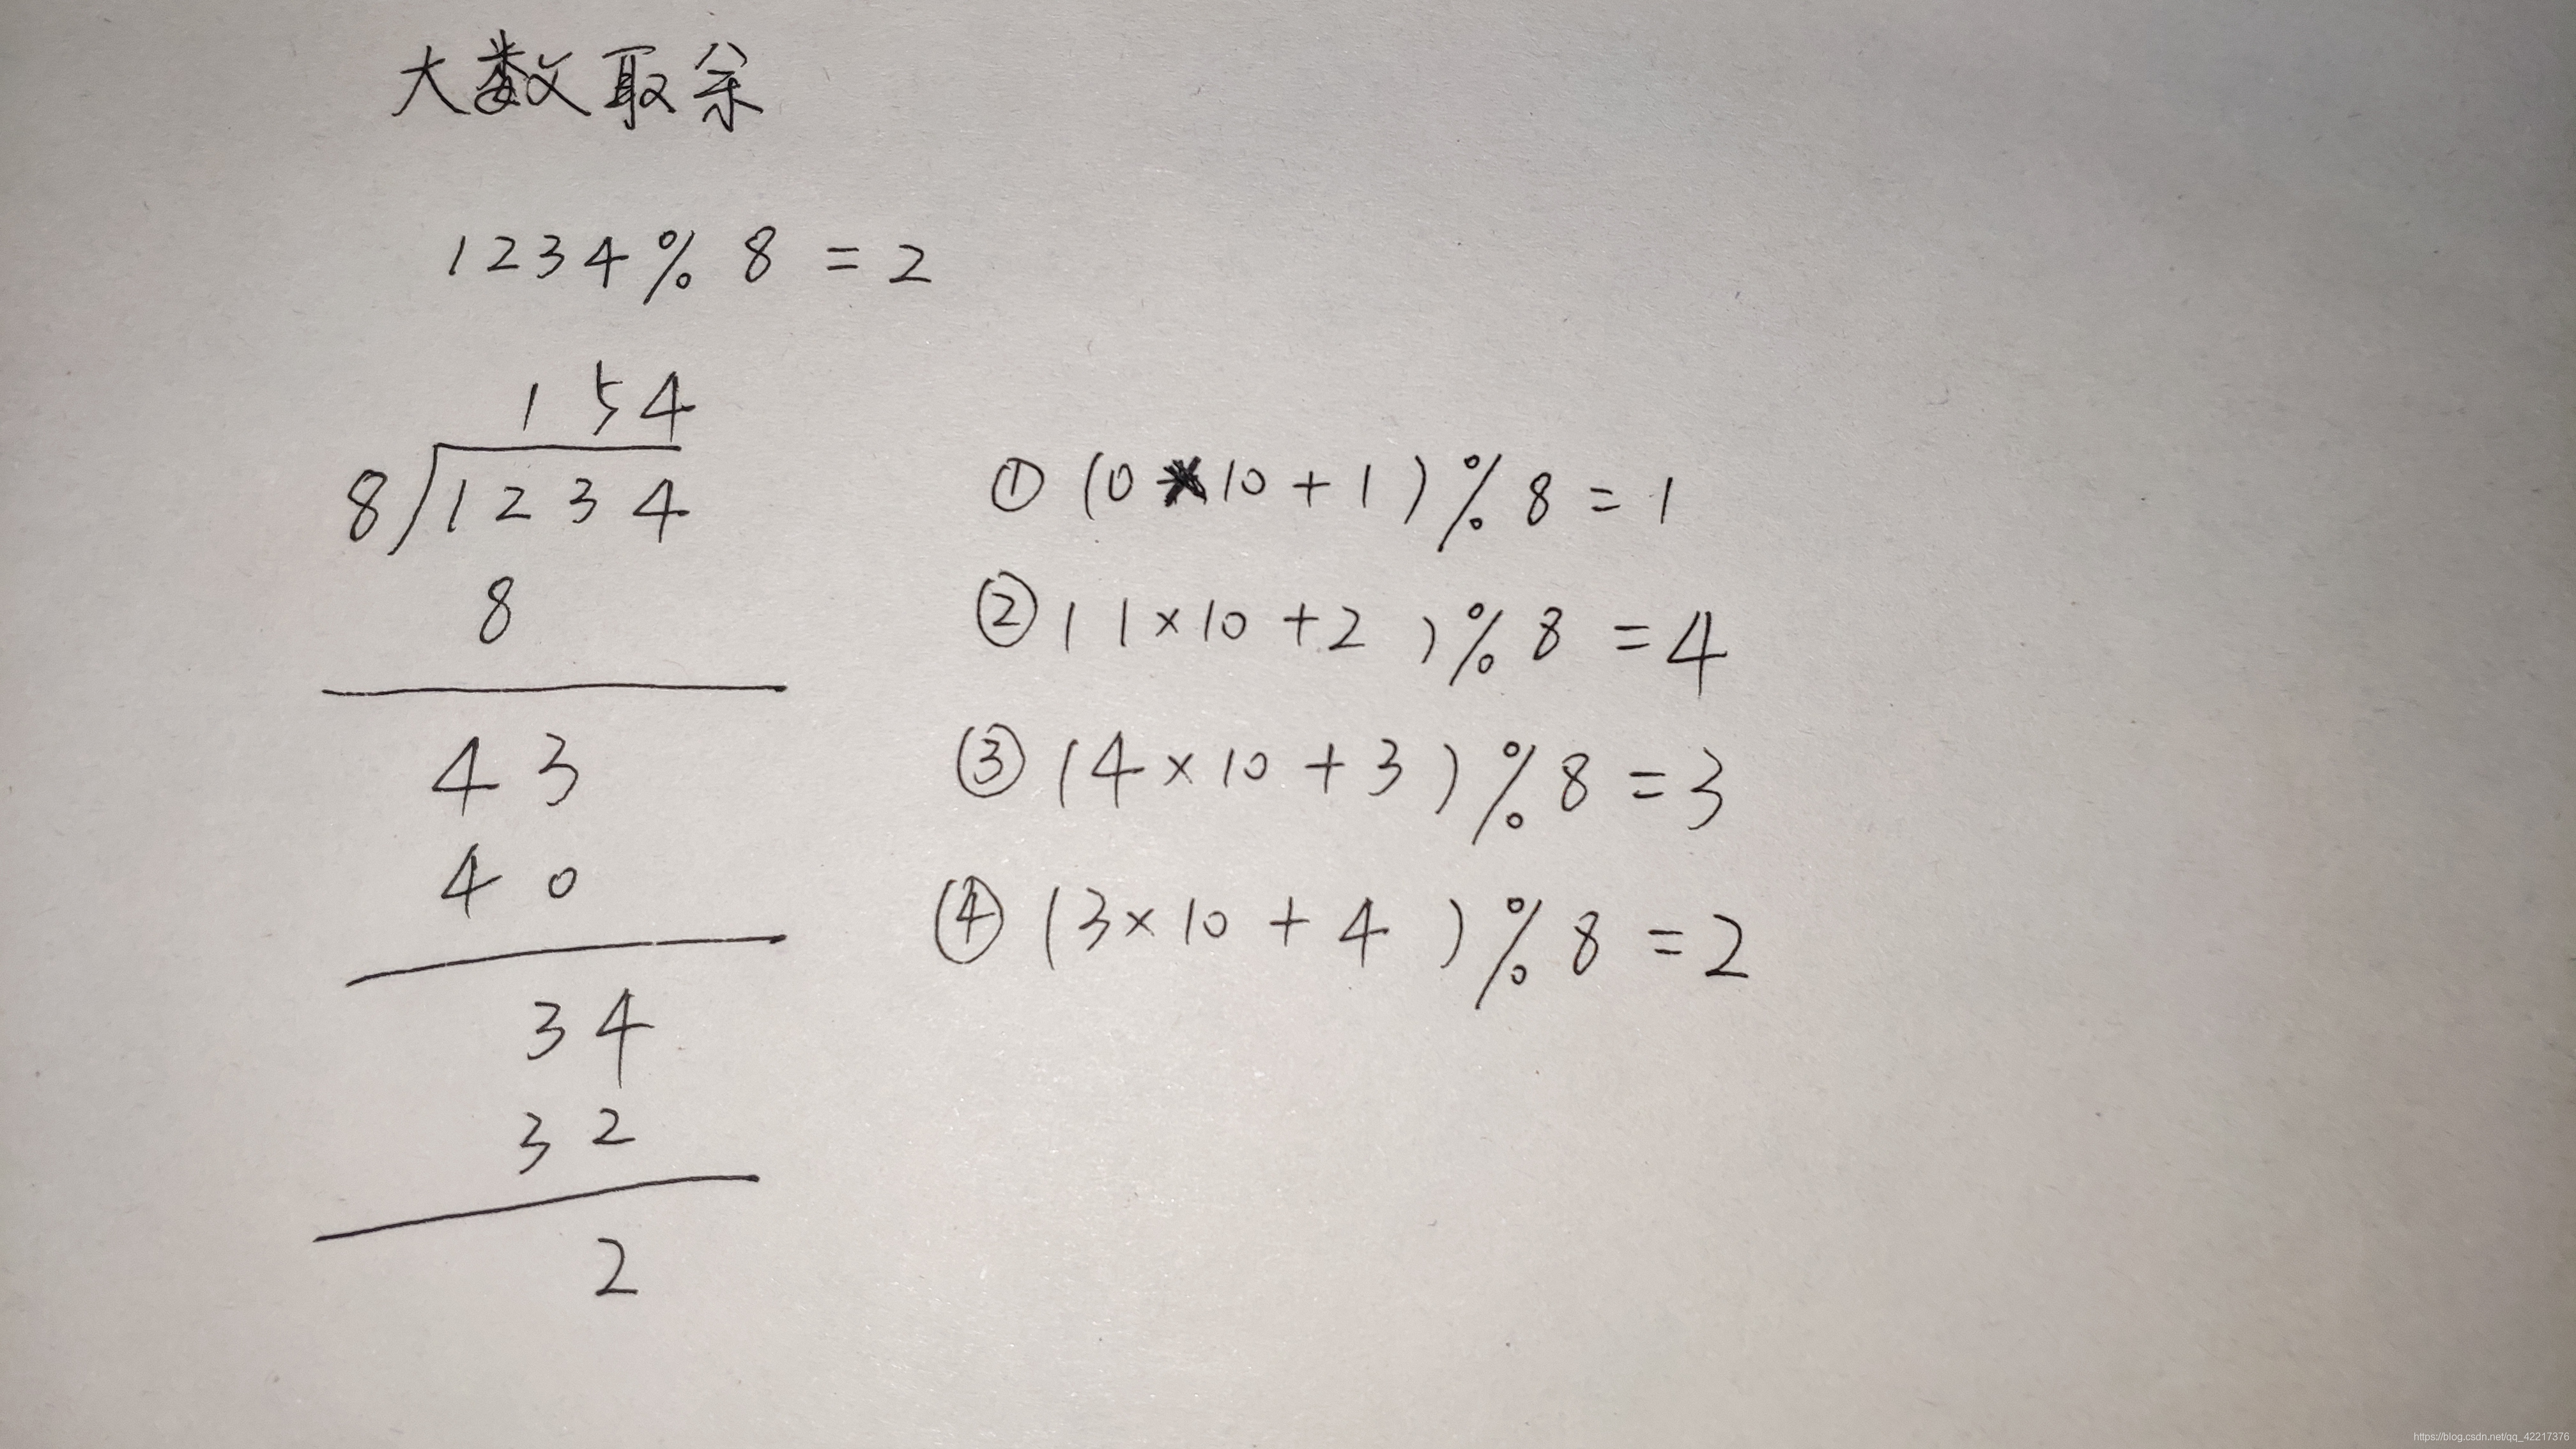 大数取余
1234 % 8 = 2
154
8 1234
8
43
40
34
32
2
① (0 × 10 + 1) % 8 = 1
② (1 × 10 + 2) % 8 = 4
③ (4 × 10 + 3) % 8 = 3
④ (3 × 10 + 4) % 8 = 2
https://blog.csdn.net/qq_42217376